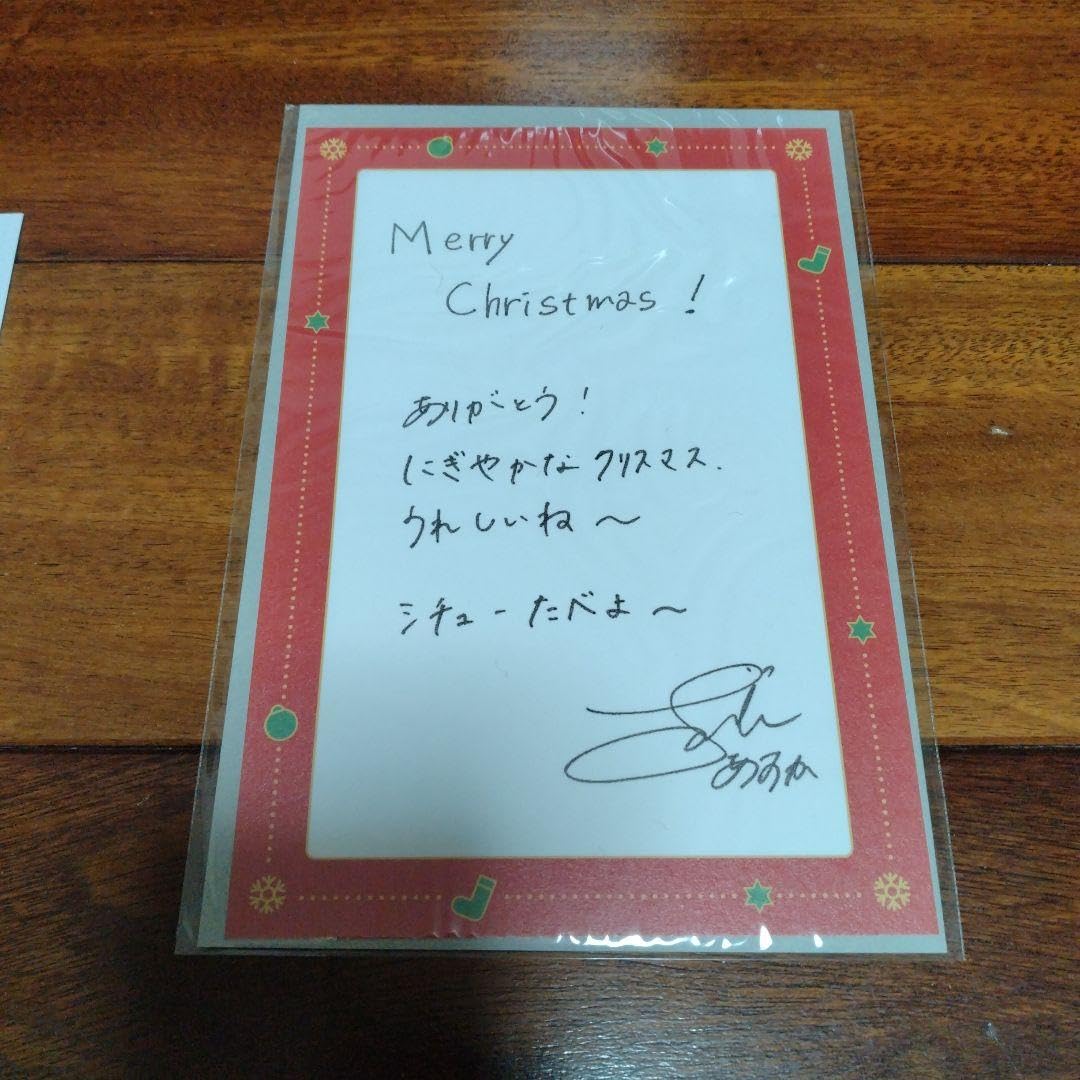 Merry
Christmas!
ありがとう!
にぎやかなクリスマス.
うれしいね〜
シチューたべよ〜
あすか